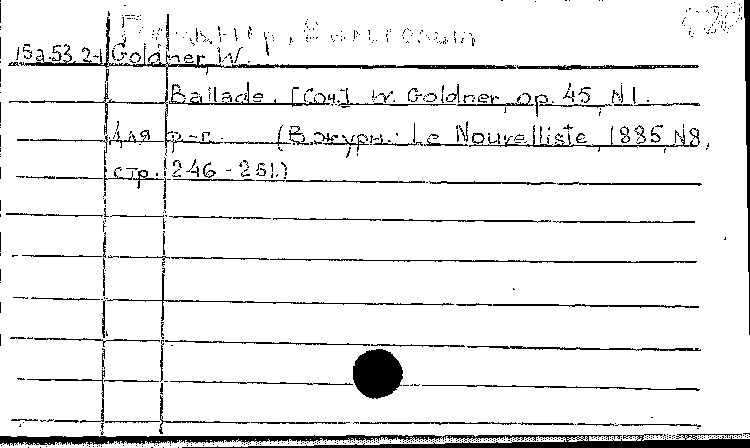 Гольднер, Вильгельм
15a.53.2-1 Goldner, W.
Ballade. [Соч.] W. Goldner, op. 45, N1.
Для ф-п. (В журн.: Le Nouvelliste, 1885, N8,
стр. 246-251.)